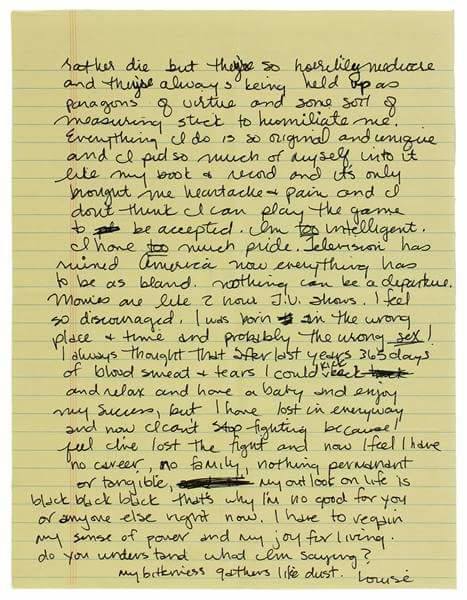 rather die but they're so horribly mediocre
and they're always being held up as
paragons of virtue and some sort of
measuring stick to humiliate me.
Everything I do is so original and unique
and I put so much of myself into it
like my book & record and it's only
brought me heartache & pain and I
don't think I can play the game
to be accepted. I'm too intelligent.
I have too much pride. Television has
ruined America now everything has
to be as bland. nothing can be a departure.
Movies are like 2 hour T.V. shows. I feel
so discouraged. I was born in the wrong
place & time and probably the wrong sex!
I always thought that after last years 365 days
of blood sweat & tears I could kick back
and relax and have a baby and enjoy
my success, but I have lost in everyway
and now I can't stop fighting because I
feel I've lost the fight and now I feel I have
no career, no family, nothing permanent
or tangible, my outlook on life is
black black black that's why I'm no good for you
or anyone else right now. I have to regain
my sense of power and my joy for living.
do you understand what I'm saying?
my bitterness gathers like dust. Louise